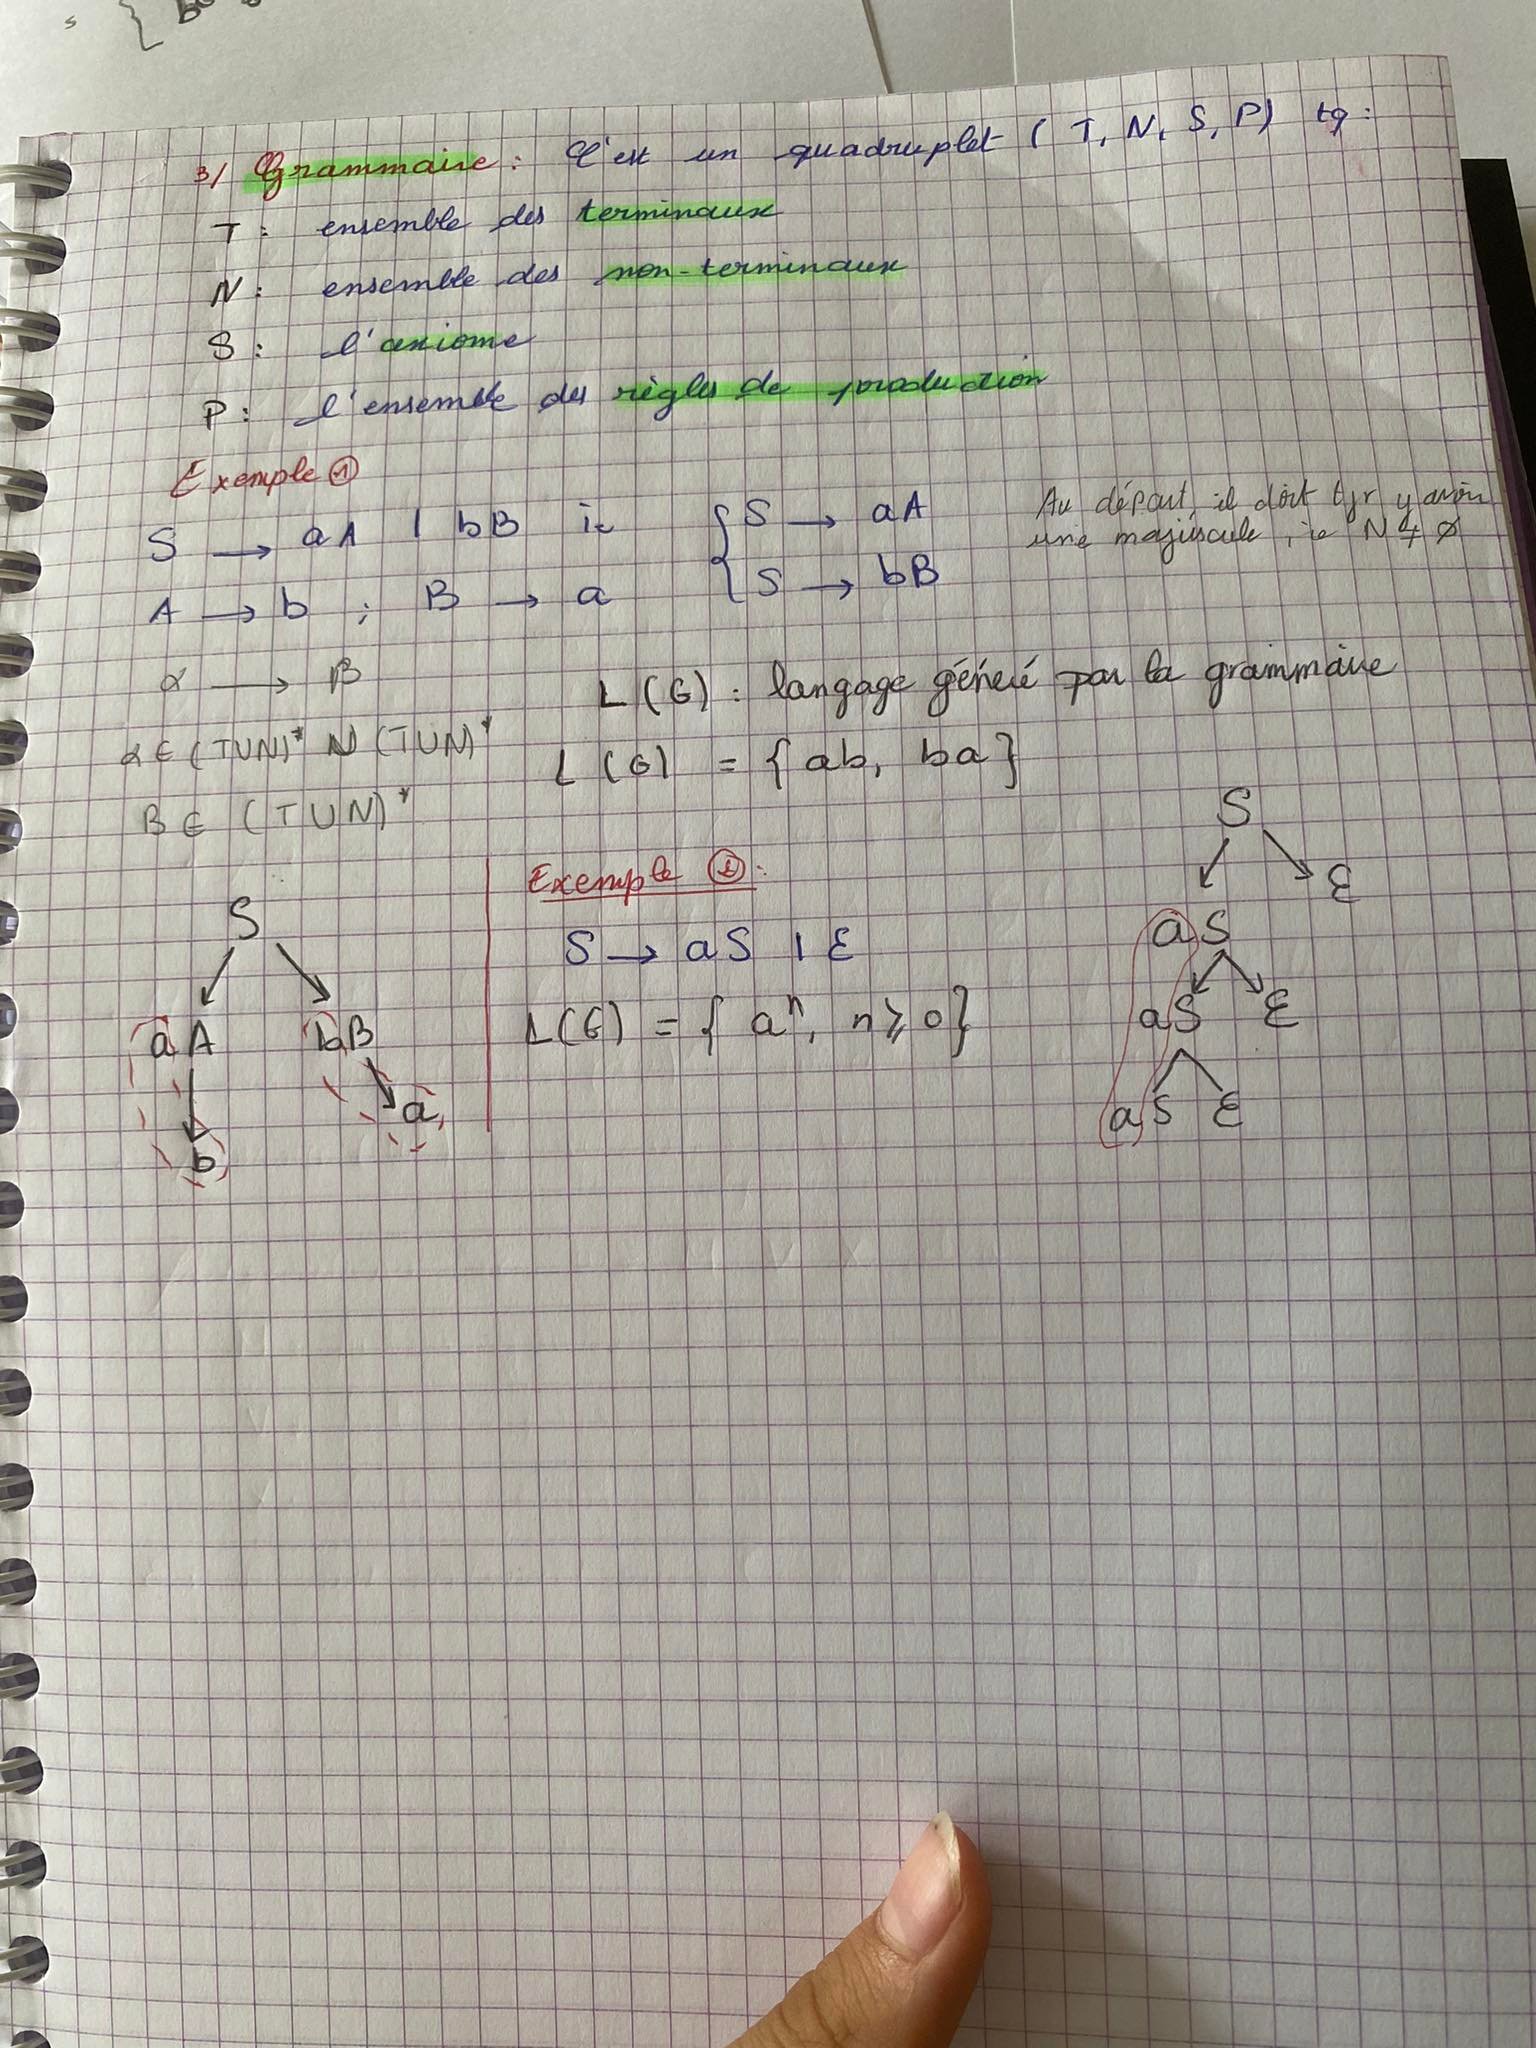 3/ Grammaire : C'est un quadruplet ( T, N, S, P) tq :
T : ensemble des terminaux
N : ensemble des non-terminaux
S : l'axiome
P : l'ensemble des règles de production
Exemple ①
S → aA | bB ie { S → aA
S → bB
A → b ; B → a
Au départ, il doit tjr y avoir
une majuscule, ie N ≠ ∅
α → β
α ∈ (TUN)* N (TUN)*
β ∈ (TUN)*
L(G) : langage généré par la grammaire
L(G) = { ab, ba }
S
aA bB
b a
Exemple ② :
S → aS | ε
L(G) = { aⁿ, n ≥ 0 }
S
aS ε
aS ε
aS ε